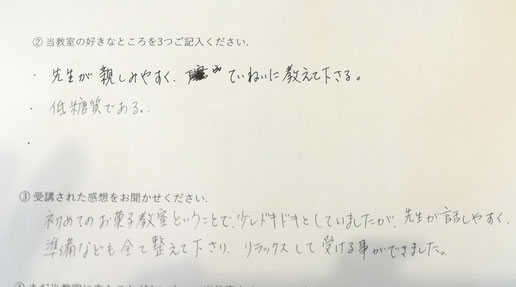 ② 当教室の好きなところを3つご記入ください.
・ 先生が親しみやすく、ていねいに教えて下さる。
・ 低糖質である。
・
③ 受講された感想をお聞かせください.
初めてのお菓子教室ということで、少しドキドキとしていましたが、先生が話しやすく、
準備なども全て整えて下さり、リラックスして受ける事ができました。